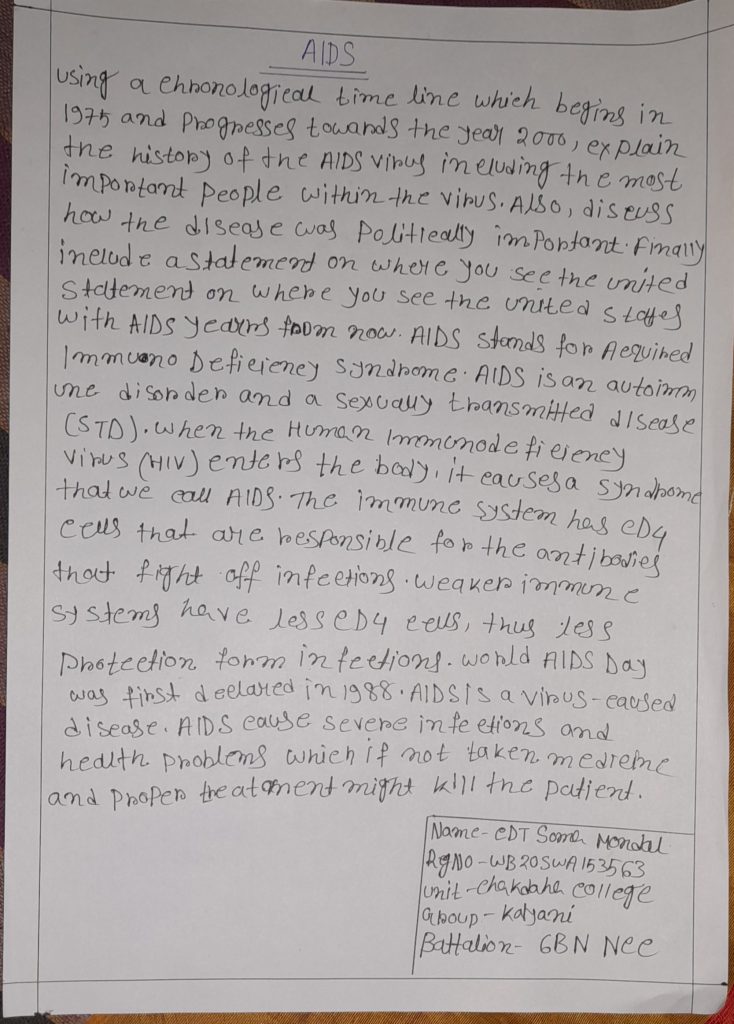 AIDS
using a chronological time line which begins in
1975 and progresses towards the year 2000, explain
the history of the AIDS virus including the most
important people within the virus. Also, discuss
how the disease was politically important. Finally
include a statement on where you see the united
statement on where you see the united states
with AIDS years from now. AIDS stands for Acquired
Immuno Deficiency syndrome. AIDS is an autoimm
une disorder and a sexually transmitted disease
(STD). when the Human Immunodeficiency
virus (HIV) enters the body, it causes a syndrome
that we call AIDS. The immune system has CD4
cells that are responsible for the antibodies
that fight off infections. weaker immune
systems have less CD4 cells, thus less
protection form infections. world AIDS Day
was first declared in 1988. AIDS is a virus-caused
disease. AIDS cause severe infections and
health problems which if not taken medicine
and proper treatment might kill the patient.
Name- CDT Soma Mondal
Rg NO - WB20SWA153563
unit - chakdaha college
Group - Kalyani
Battalion- 6BN NCC